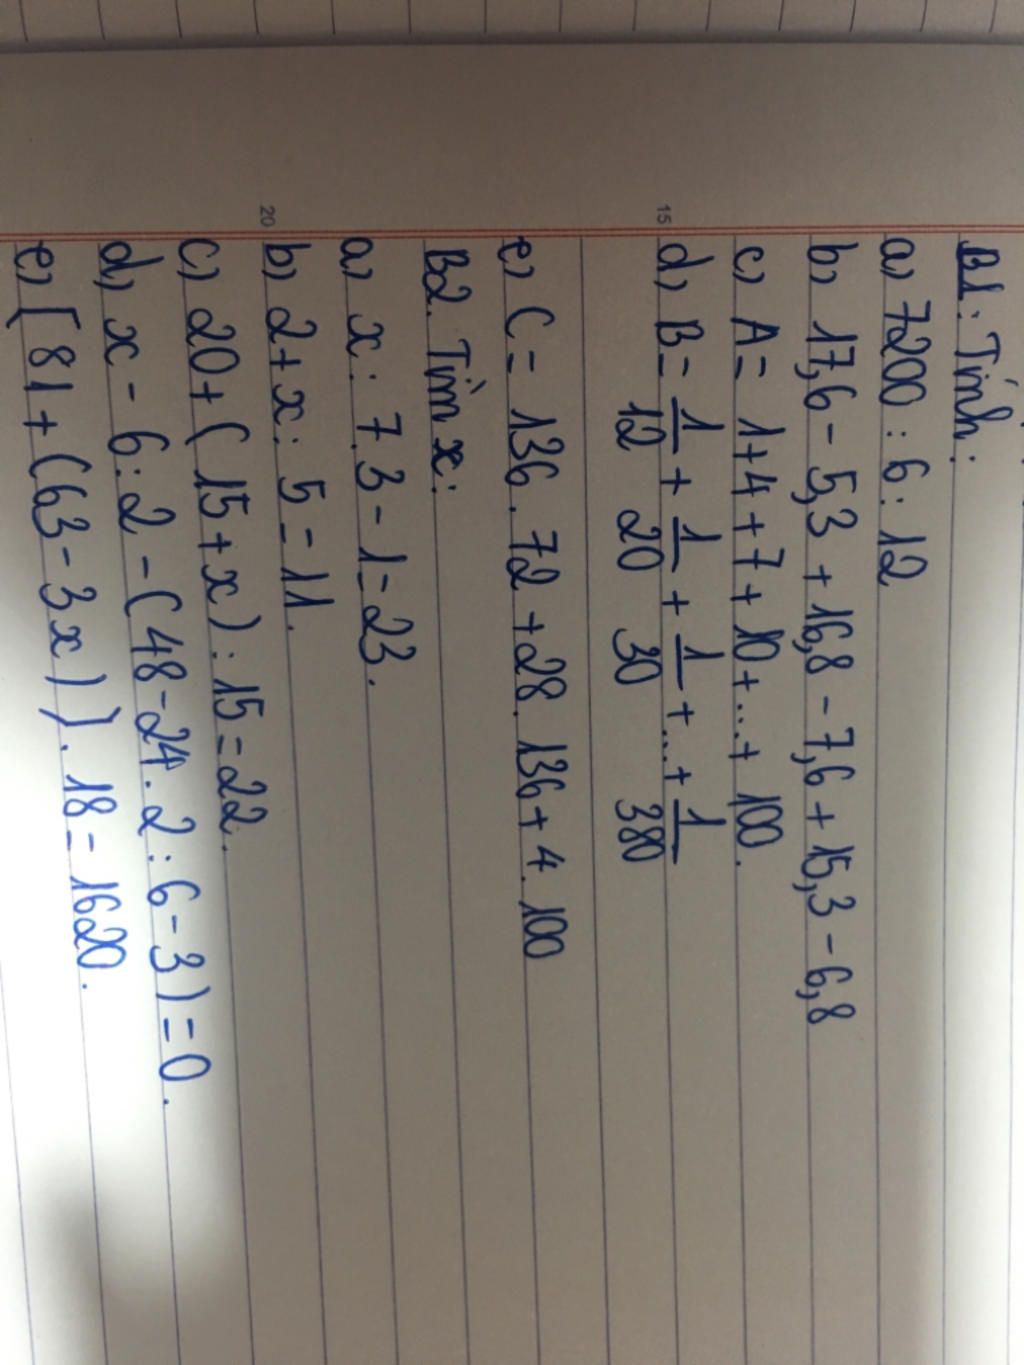 B1: Tính:
a) 7200 : 6 : 12
b) 17,6 - 5,3 + 16,8 - 7,6 + 15,3 - 6,8
c) A = 1+4+7+10+...+ 100.
15
d) B = 1/12 + 1/20 + 1/30 + ... + 1/380
e) C = 136 . 72 + 28 . 136 + 4 . 100
B2. Tìm x:
a) x : 7 . 3 - 1 = 23.
20
b) 2 + x : 5 = 11.
c) 20 + ( 15 + x ) : 15 = 22.
d) x - 6 : 2 - ( 48 - 24 . 2 : 6 - 3 ) = 0.
e) [ 81 + (63 - 3x ) ] . 18 = 1620.